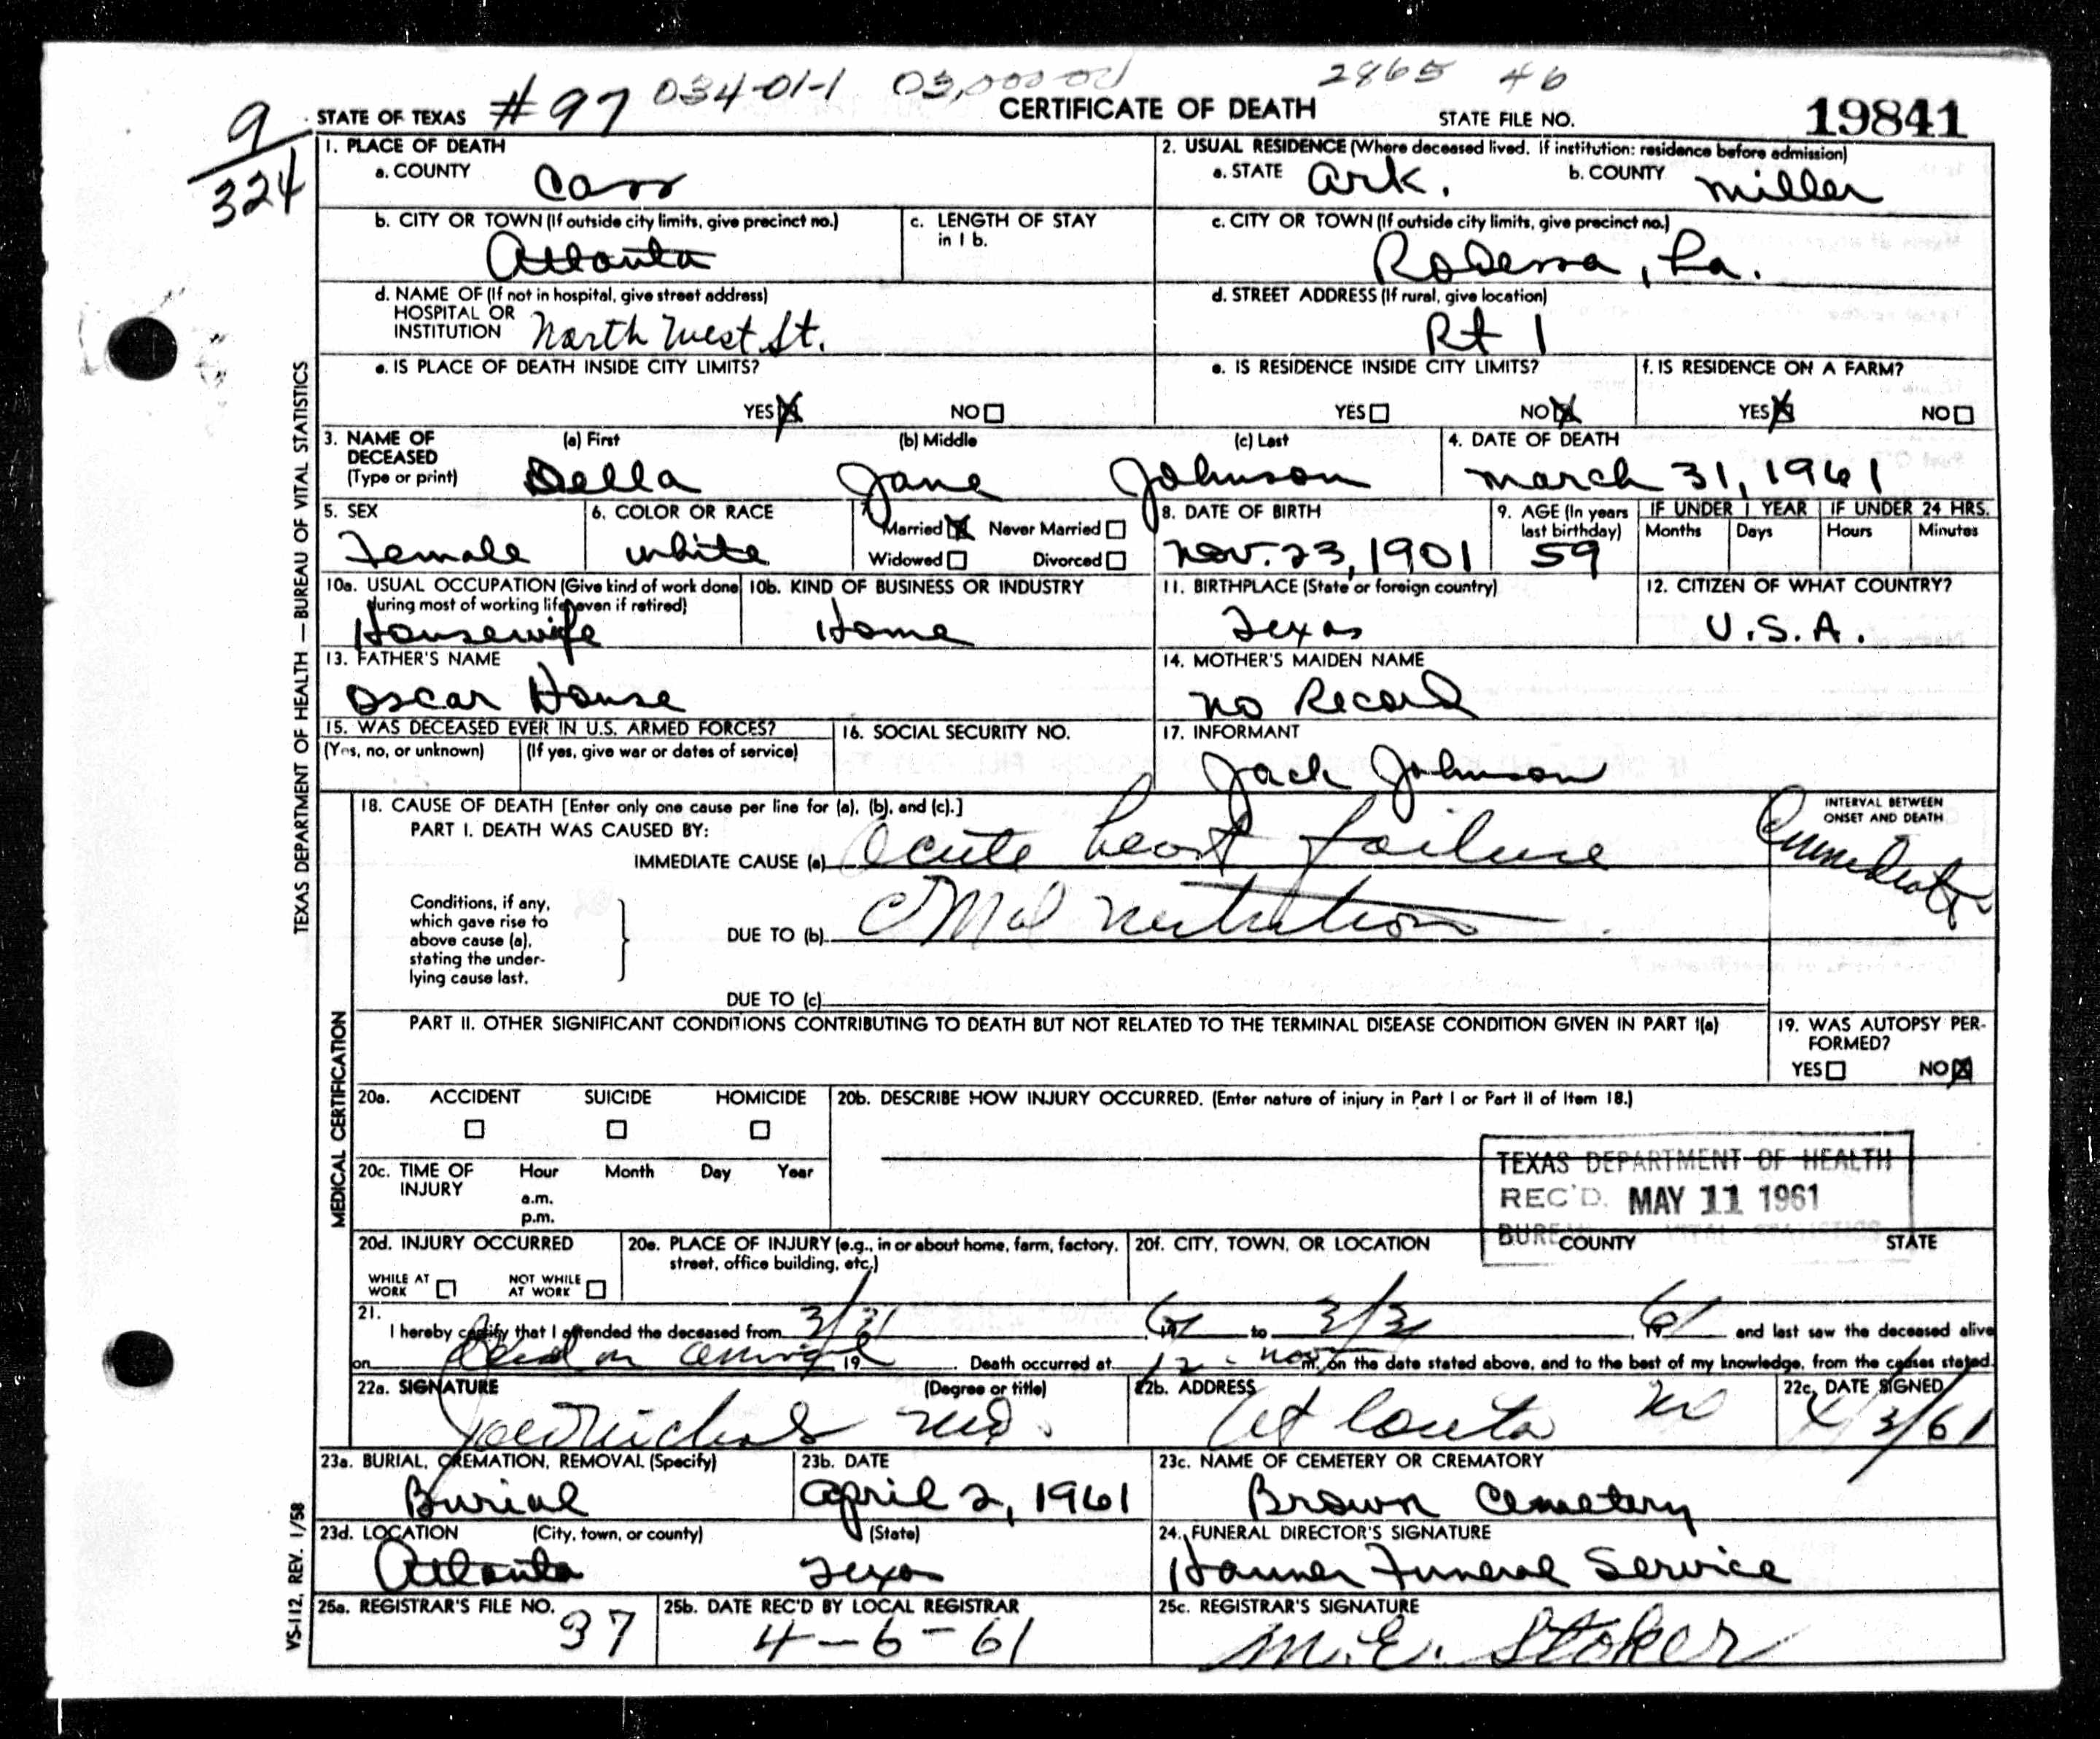 9
324
STATE OF TEXAS #97 034-01-1 2865 46
CERTIFICATE OF DEATH
STATE FILE NO. 19841
TEXAS DEPARTMENT OF HEALTH — BUREAU OF VITAL STATISTICS
1. PLACE OF DEATH
a. COUNTY Cass
2. USUAL RESIDENCE (Where deceased lived. If institution: residence before admission)
a. STATE Ark. b. COUNTY Miller
b. CITY OR TOWN (If outside city limits, give precinct no.)
Atlanta
c. LENGTH OF STAY
in 1 b.
c. CITY OR TOWN (If outside city limits, give precinct no.)
Rodessa, La.
d. NAME OF (If not in hospital, give street address)
HOSPITAL OR
INSTITUTION North West St.
d. STREET ADDRESS (If rural, give location)
Rt 1
e. IS PLACE OF DEATH INSIDE CITY LIMITS?
YES X NO
e. IS RESIDENCE INSIDE CITY LIMITS?
YES NO X
f. IS RESIDENCE ON A FARM?
YES X NO
3. NAME OF
DECEASED
(Type or print)
(a) First (b) Middle (c) Last
Della Jane Johnson
4. DATE OF DEATH
March 31, 1961
5. SEX
Female
6. COLOR OR RACE
White
7 Married X Never Married
Widowed Divorced
8. DATE OF BIRTH
Nov. 23, 1901
9. AGE (In years
last birthday)
59
IF UNDER 1 YEAR IF UNDER 24 HRS.
Months Days Hours Minutes
10a. USUAL OCCUPATION (Give kind of work done
during most of working life, even if retired)
Housewife
10b. KIND OF BUSINESS OR INDUSTRY
Home
11. BIRTHPLACE (State or foreign country)
Texas
12. CITIZEN OF WHAT COUNTRY?
U.S.A.
13. FATHER'S NAME
Oscar House
14. MOTHER'S MAIDEN NAME
No Record
15. WAS DECEASED EVER IN U.S. ARMED FORCES?
(Yes, no, or unknown) (If yes, give war or dates of service)
16. SOCIAL SECURITY NO.
17. INFORMANT
Jack Johnson
MEDICAL CERTIFICATION
18. CAUSE OF DEATH [Enter only one cause per line for (a), (b), and (c).]
PART I. DEATH WAS CAUSED BY:
IMMEDIATE CAUSE (a) Acute heart failure
INTERVAL BETWEEN
ONSET AND DEATH
Conditions, if any,
which gave rise to
above cause (a),
stating the under-
lying cause last.
DUE TO (b) Mal nutrition
DUE TO (c)
PART II. OTHER SIGNIFICANT CONDITIONS CONTRIBUTING TO DEATH BUT NOT RELATED TO THE TERMINAL DISEASE CONDITION GIVEN IN PART I(a)
19. WAS AUTOPSY PER-
FORMED?
YES NO X
20a. ACCIDENT SUICIDE HOMICIDE
20b. DESCRIBE HOW INJURY OCCURRED. (Enter nature of injury in Part I or Part II of Item 18.)
20c. TIME OF
INJURY
Hour Month Day Year
a.m.
p.m.
TEXAS DEPARTMENT OF HEALTH
REC'D. MAY 11 1961
BUREAU VITAL STATISTICS
20d. INJURY OCCURRED
WHILE AT
WORK
NOT WHILE
AT WORK
20e. PLACE OF INJURY (e.g., in or about home, farm, factory,
street, office building, etc.)
20f. CITY, TOWN, OR LOCATION COUNTY STATE
21.
I hereby certify that I attended the deceased from 3/31, 1961 to 3/31, 1961 and last saw the deceased alive
on Dead on arrival 19 . Death occurred at 12 - noon m., on the date stated above, and to the best of my knowledge, from the causes stated.
22a. SIGNATURE (Degree or title)
Joe D Nichols MD.
22b. ADDRESS
Atlanta
22c. DATE SIGNED
4/3/61
23a. BURIAL, CREMATION, REMOVAL (Specify)
Burial
23b. DATE
April 2, 1961
23c. NAME OF CEMETERY OR CREMATORY
Brown Cemetery
23d. LOCATION (City, town, or county) (State)
Atlanta Texas
24. FUNERAL DIRECTOR'S SIGNATURE
Hanner Funeral Service
25a. REGISTRAR'S FILE NO.
37
25b. DATE REC'D BY LOCAL REGISTRAR
4-6-61
25c. REGISTRAR'S SIGNATURE
M.E. Stoker
VS-112, REV. 1/58